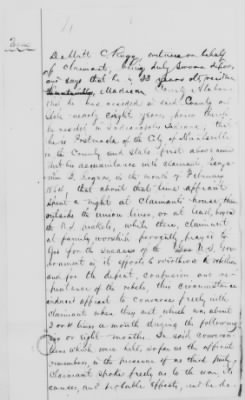 De Witt C. a witness on behalf
of claimant, being duly sworn deposes
and says that he is 33 years old, resident
Huntsville, Madison County, Alabama
that he has resided in said County and
State nearly eight years, prior thereto
he resided in Indianapolis, Indiana; that
he is Postmaster of the City of Huntsville
in the County and State first above named
that his acquaintance with claimant,
in the month of February
that about that time affiant
spent a night at claimant's house, then
outside the union lines, or at least, beyond
the U.S. pickets, while there, claimant
at family worship fervently prayed to
God for the success of the U.S. Gov-
ernment in its efforts to overthrow the rebellion
and for the defeat, confusion and re-
pentance of the rebels, this circumstance
induced affiant to converse freely with
claimant when they met which was about
2 or 3 times a month during the following
six or eight months. In said conversa-
tions which were held, so far as the affiant
remembers, in the presence of no third party,
claimant spoke freely as to the war, its
causes, and probable effects, and he de-